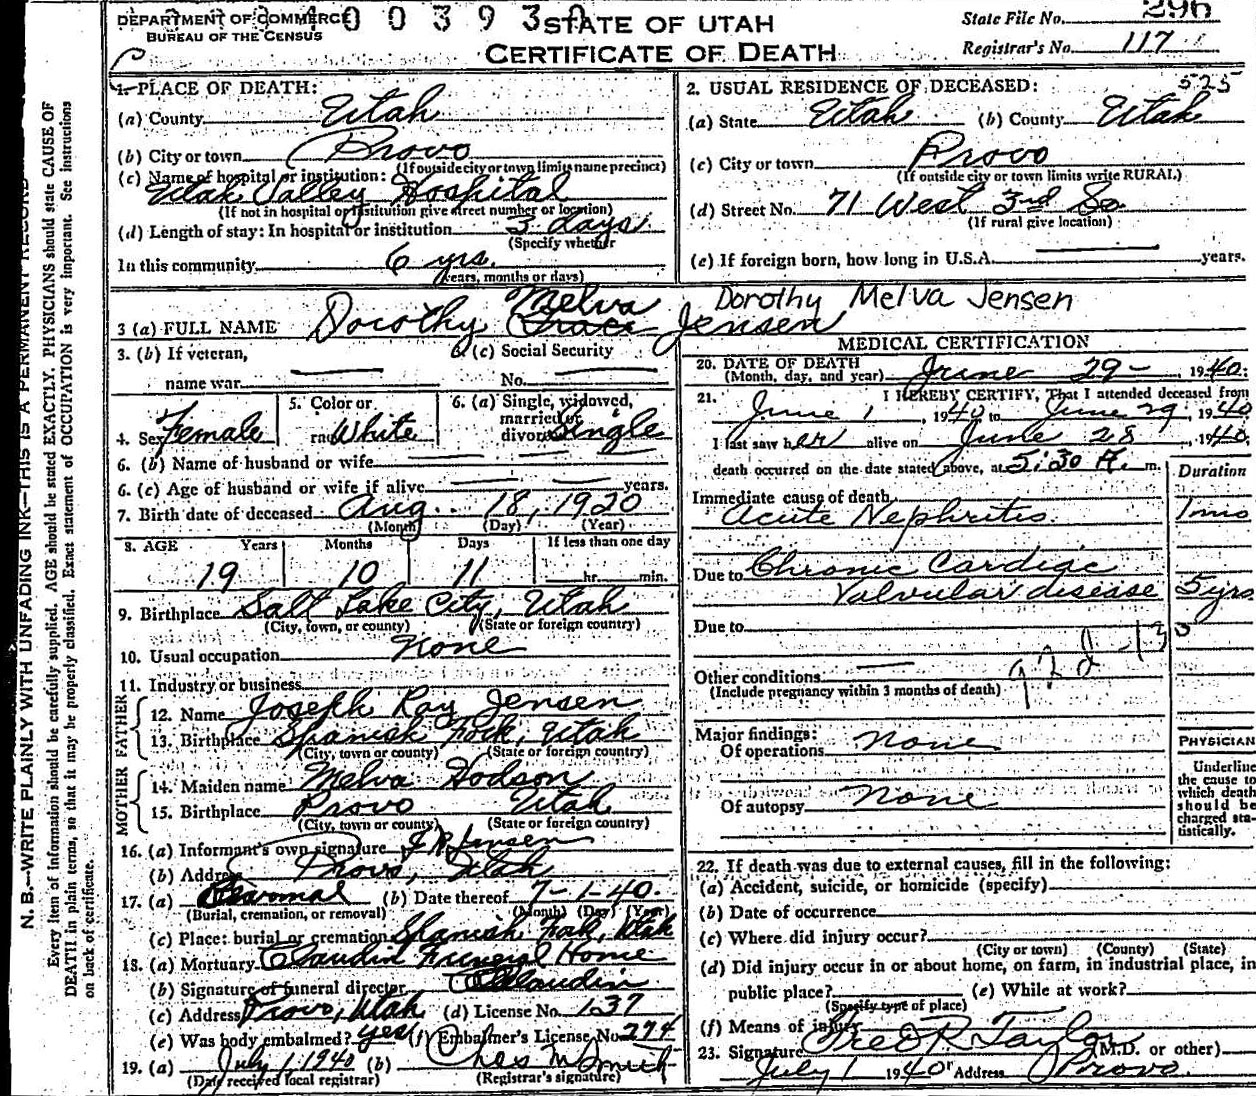 DEPARTMENT OF COMMERCE
BUREAU OF THE CENSUS
0 0 3 9 3
STATE OF UTAH
CERTIFICATE OF DEATH
State File No. 296
Registrar's No. 117
N. B.—WRITE PLAINLY WITH UNFADING INK—THIS IS A PERMANENT RECORD
Every item of information should be carefully supplied. AGE should be stated EXACTLY. PHYSICIANS should state CAUSE OF
DEATH in plain terms, so that it may be properly classified. Exact statement of OCCUPATION is very important. See instructions
on back of certificate.
1. PLACE OF DEATH:
(a) County Utah
(b) City or town Provo
(If outside city or town limits name precinct)
(c) Name of hospital or institution:
Utah Valley Hospital
(If not in hospital or institution give street number or location)
(d) Length of stay: In hospital or institution 3 days.
(Specify whether
In this community 6 yrs.
years, months or days)
525
2. USUAL RESIDENCE OF DECEASED:
(a) State Utah (b) County Utah
(c) City or town Provo
(If outside city or town limits write RURAL)
(d) Street No. 71 West 3rd So.
(If rural give location)
(e) If foreign born, how long in U.S.A. years.
Melva Dorothy Melva Jensen
3 (a) FULL NAME Dorothy Grace Jensen
3. (b) If veteran,
name war
(c) Social Security
No.
4. Sex Female
5. Color or
race White
6. (a) Single, widowed,
married or
divorced Single
6. (b) Name of husband or wife
6. (c) Age of husband or wife if alive years.
7. Birth date of deceased Aug. 18, 1920
(Month) (Day) (Year)
8. AGE Years Months Days If less than one day
19 10 11 hr. min.
9. Birthplace Salt Lake City, Utah
(City, town, or county) (State or foreign country)
10. Usual occupation None
11. Industry or business
FATHER
12. Name Joseph Ray Jensen
13. Birthplace Spanish Fork, Utah
(City, town or county) (State or foreign country)
MOTHER
14. Maiden name Melva Hodson
15. Birthplace Provo Utah
(City, town or county) (State or foreign country)
16. (a) Informant's own signature J R Jensen
(b) Address Provo, Utah
17. (a) Removal (b) Date thereof 7-1-40.
(Burial, cremation, or removal) (Month) (Day) (Year)
(c) Place: burial or cremation Spanish Fork, Utah
18. (a) Mortuary Claudin Funeral Home
(b) Signature of funeral director Claudin
(c) Address Provo, Utah (d) License No. 137
(e) Was body embalmed? yes (f) Embalmer's License No. 274
19. (a) July 1, 1940 (b) Ches M Smith
(Date received local registrar) (Registrar's signature)
MEDICAL CERTIFICATION
20. DATE OF DEATH
(Month, day, and year) June 29 - , 1940.
21. I HEREBY CERTIFY, That I attended deceased from
June 1, 1940 to June 29, 1940
I last saw her alive on June 28, 1940.
death occurred on the date stated above, at 5:30 A. m.
Duration
Immediate cause of death
Acute Nephritis. 1 mo
Due to Chronic Cardiac
Valvular disease 5 yrs.
Due to
Other conditions
(Include pregnancy within 3 months of death)
Major findings:
Of operations none
Of autopsy none
PHYSICIAN
Underline
the cause to
which death
should be
charged sta-
tistically.
22. If death was due to external causes, fill in the following:
(a) Accident, suicide, or homicide (specify)
(b) Date of occurrence
(c) Where did injury occur?
(City or town) (County) (State)
(d) Did injury occur in or about home, on farm, in industrial place, in
public place? (e) While at work?
(Specify type of place)
(f) Means of injury
23. Signature Fred R Taylor (M.D. or other)
July 1 1940 Address Provo.